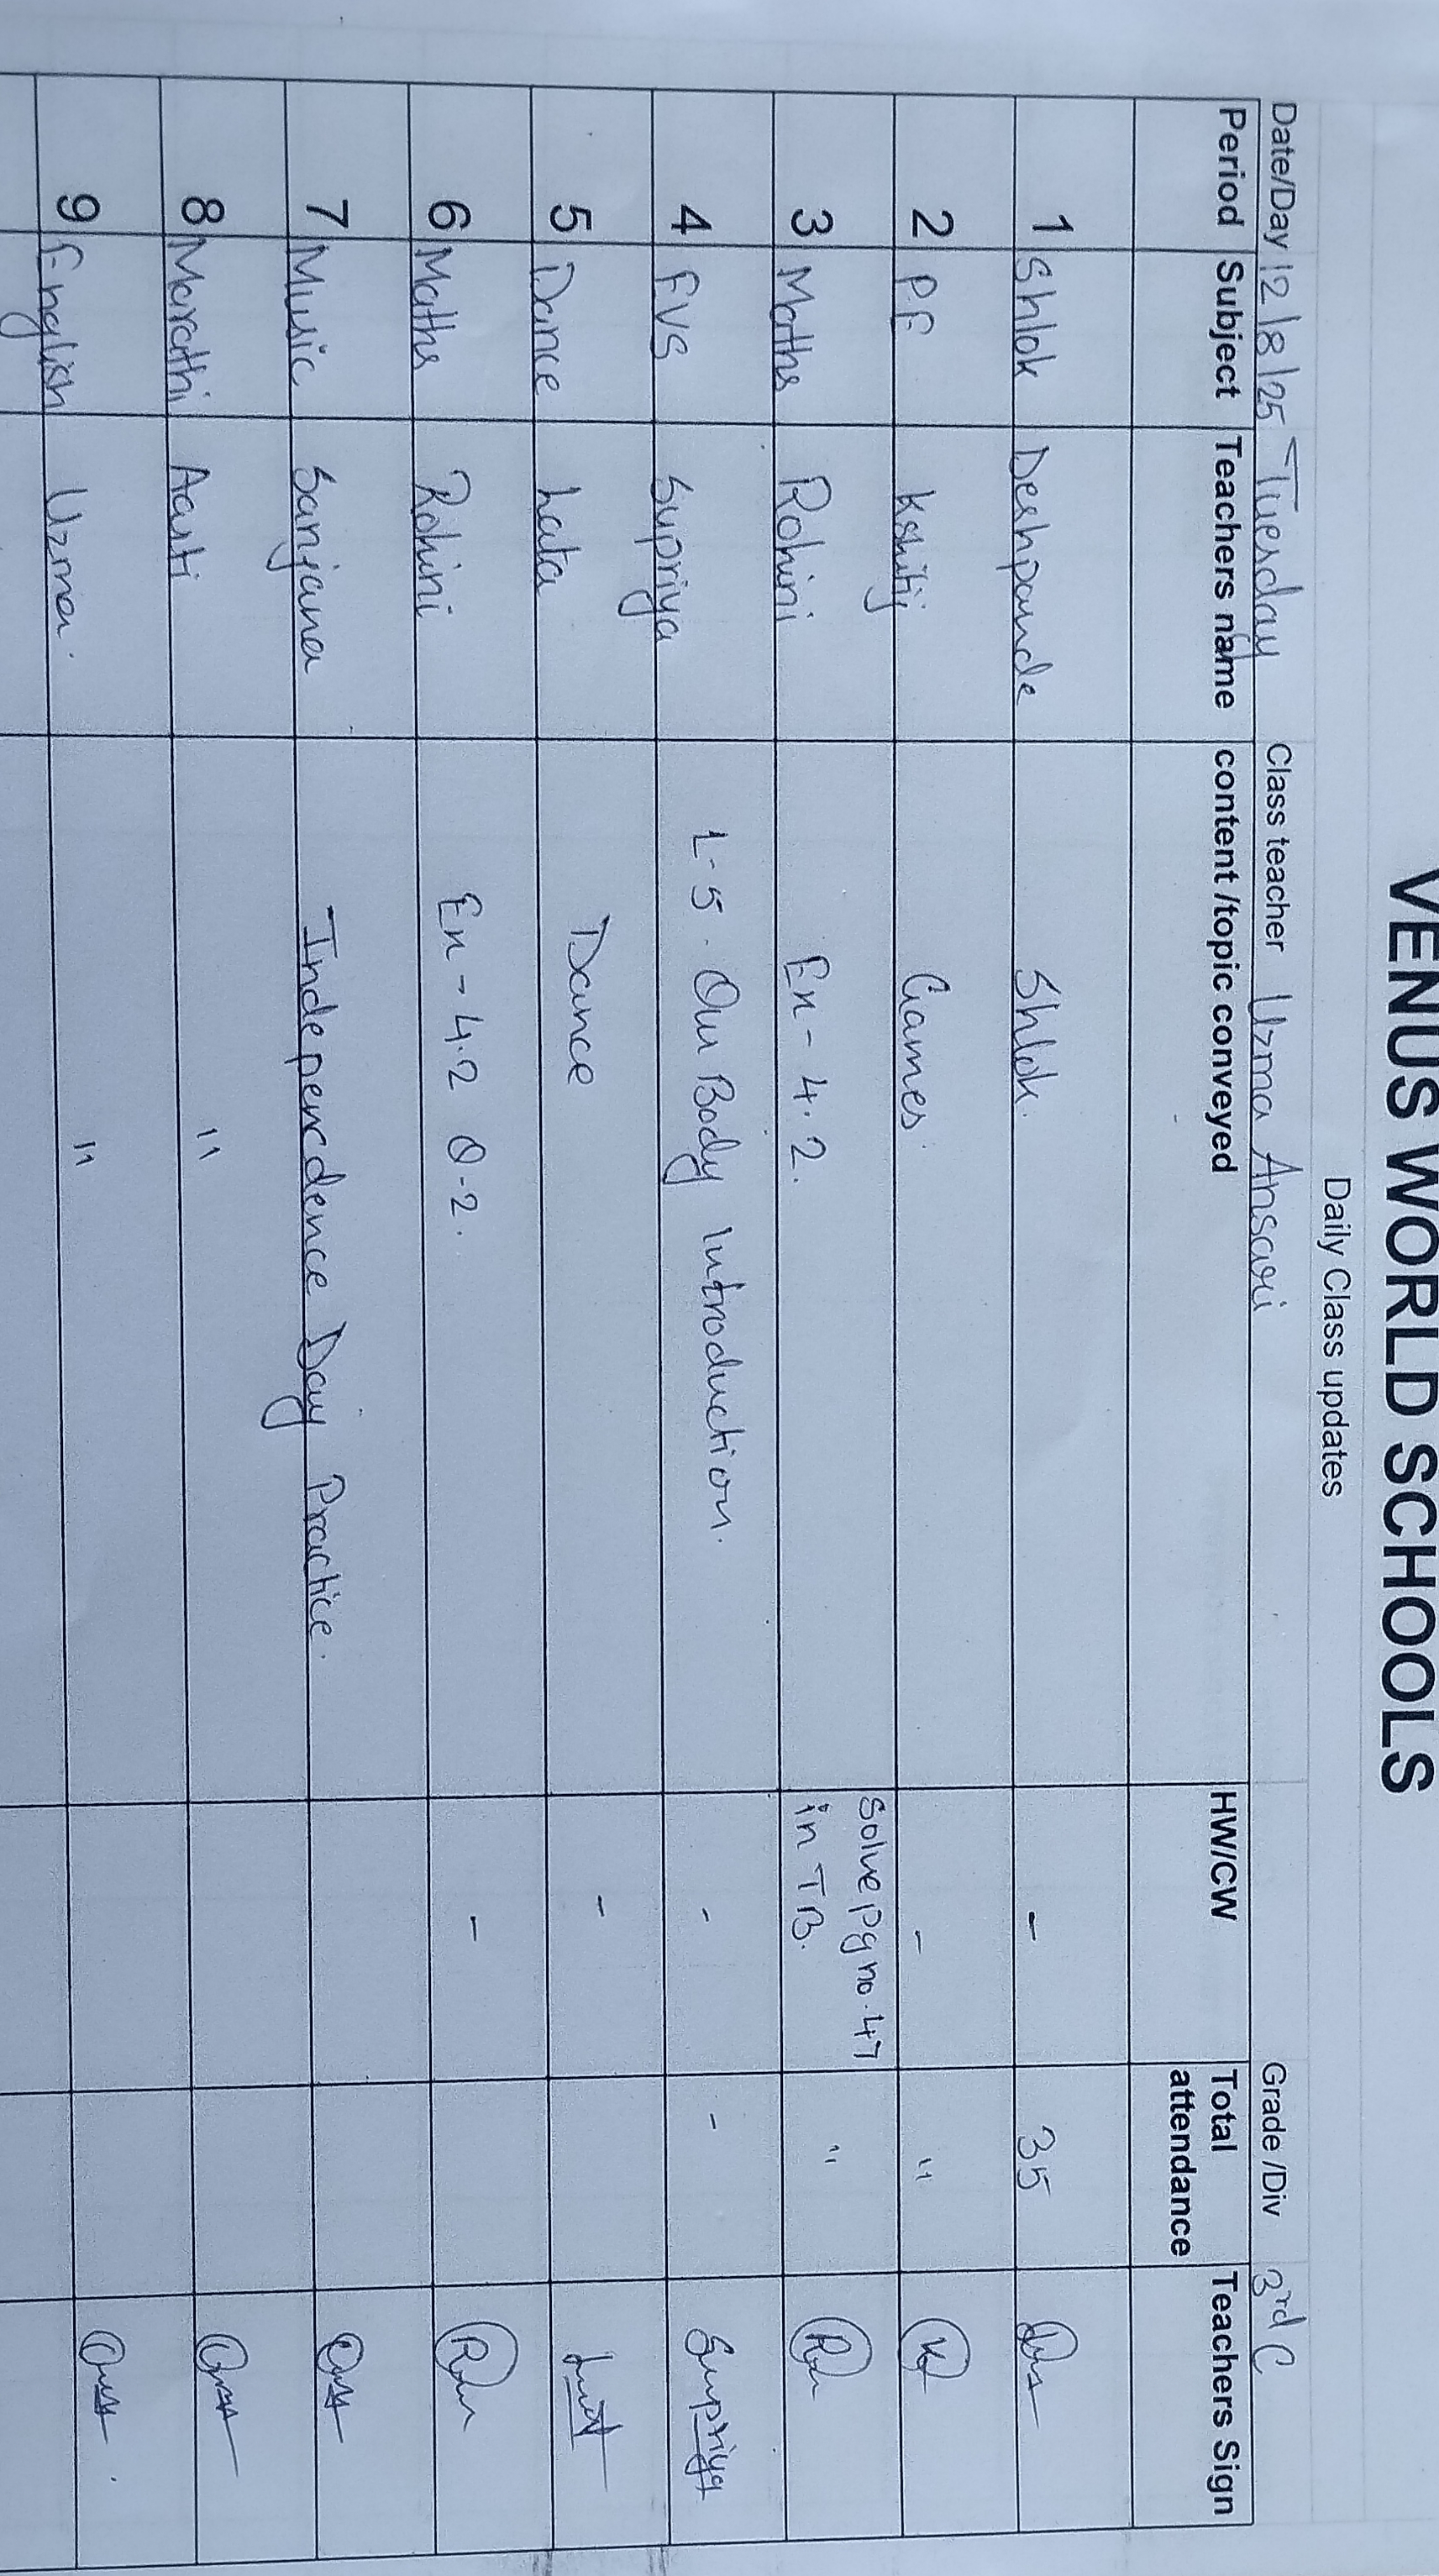 VENUS WORLD SCHOOLS
Daily Class updates
Date/Day 12/8/25 Tuesday Class teacher Uzma Ansari Grade /Div 3rd C
Period Subject Teachers name content /topic conveyed HW/CW Total attendance Teachers Sign
1 Shlok Deshpande Shlok. - 35
2 P.E Kshitij Games. - "
3 Maths Rohini Ex - 4.2. Solve Pg no. 47 in TB. "
4 EVS Supriya L-5. Our Body Introduction. - - Supriya
5 Dance Lata Dance -
6 Maths Rohini Ex - 4.2 Q-2. -
7 Music Sanjana Independence Day Practice.
8 Marathi Aarti "
9 English Uzma. "